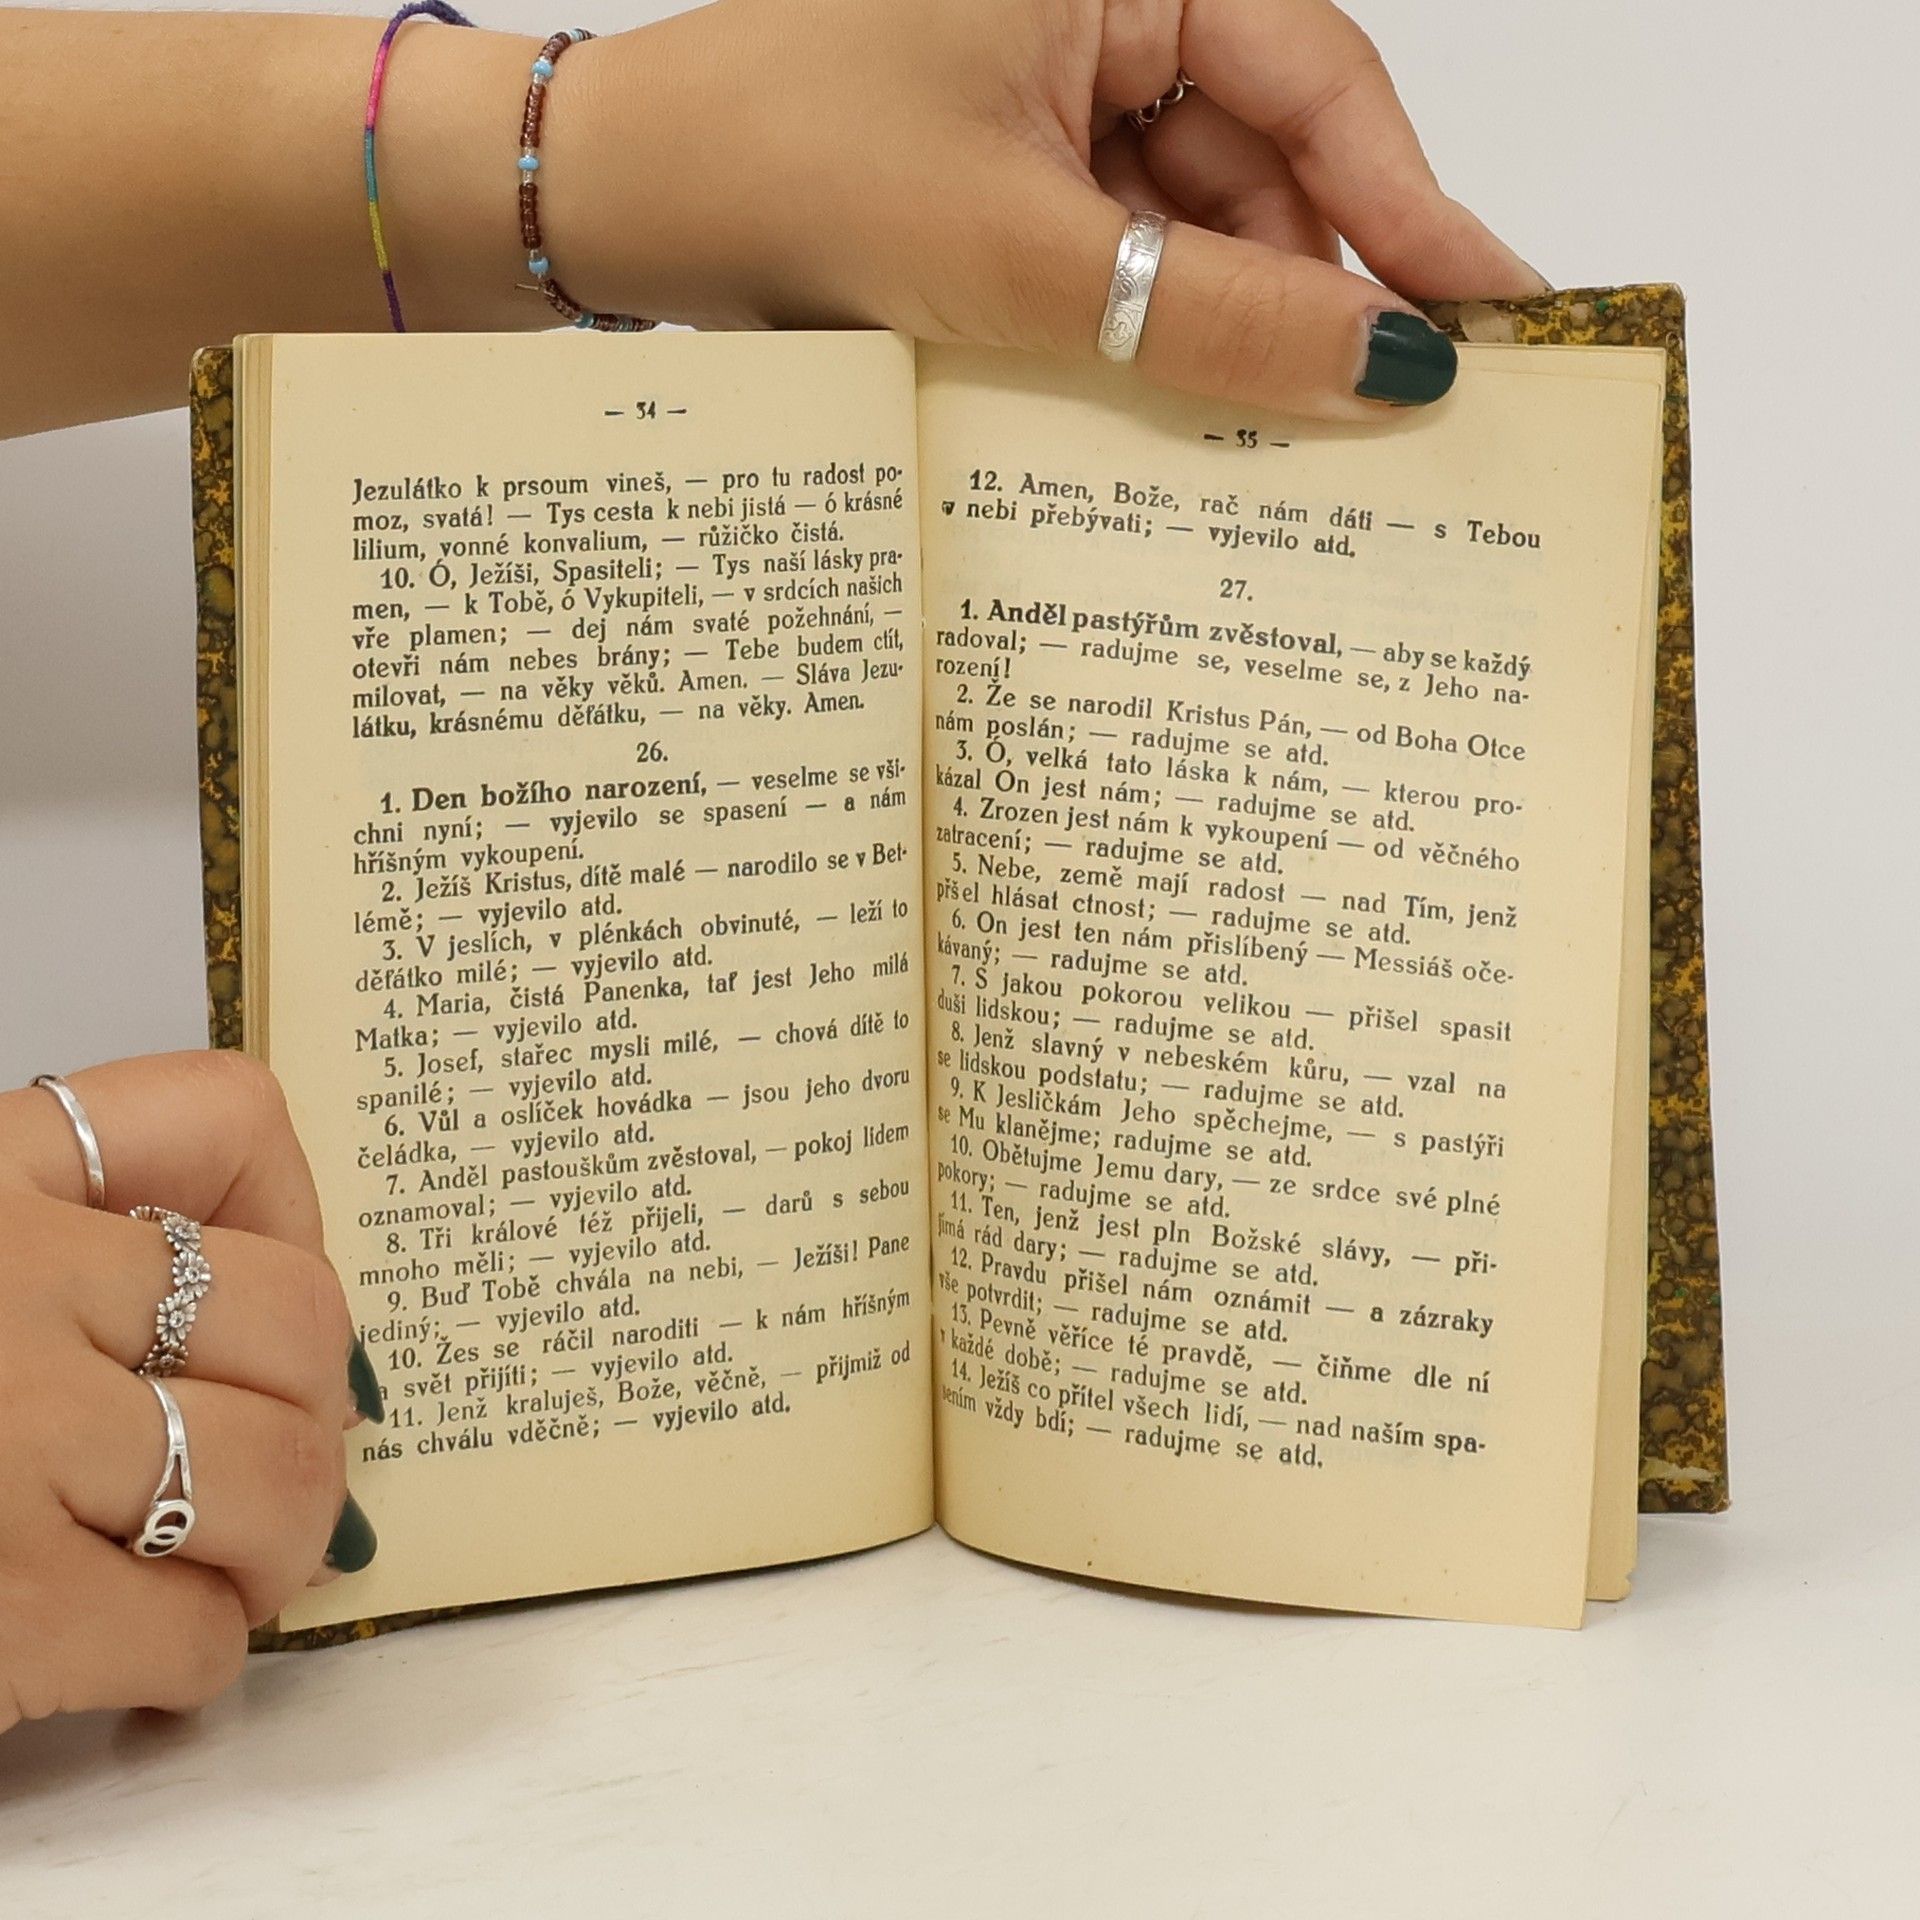 — 34 —
Jezulátko k prsoum vineš, — pro tu radost po-
moz, svatá! — Tys cesta k nebi jistá — ó krásné
lilium, vonné konvalium, — růžičko čistá.
10. Ó, Ježíši, Spasiteli; — Tys naší lásky pra-
men, — k Tobě, ó Vykupiteli, — v srdcích našich
vře plamen; — dej nám svaté požehnání, —
otevři nám nebes brány; — Tebe budem ctít,
milovat, — na věky věků. Amen. — Sláva Jezu-
látku, krásnému děťátku, — na věky. Amen.
26.
1. Den božího narození, — veselme se vši-
chni nyní; — vyjevilo se spasení — a nám
hříšným vykoupení.
2. Ježíš Kristus, dítě malé — narodilo se v Bet-
lémě; — vyjevilo atd.
3. V jeslích, v plénkách obvinuté, — leží to
děťátko milé; — vyjevilo atd.
4. Maria, čistá Panenka, tať jest Jeho milá
Matka; — vyjevilo atd.
5. Josef, stařec mysli milé, — chová dítě to
spanilé; — vyjevilo atd.
6. Vůl a oslíček hovádka — jsou jeho dvoru
čeládka, — vyjevilo atd.
7. Anděl pastouškům zvěstoval, — pokoj lidem
oznamoval; — vyjevilo atd.
8. Tři králové též přijeli, — darů s sebou
mnoho měli; — vyjevilo atd.
9. Buď Tobě chvála na nebi, — Ježíši! Pane
jediný; — vyjevilo atd.
10. Žes se ráčil naroditi — k nám hříšným
svět přijíti; — vyjevilo atd.
11. Jenž kraluješ, Bože, věčně, — přijmiž od
nás chválu vděčně; — vyjevilo atd.
— 35 —
12. Amen, Bože, rač nám dáti — s Tebou
v nebi přebývati; — vyjevilo atd.
27.
1. Anděl pastýřům zvěstoval, — aby se každý
radoval; — radujme se, veselme se, z Jeho na-
rození!
2. Že se narodil Kristus Pán, — od Boha Otce
nám poslán; — radujme se atd.
3. Ó, velká tato láska k nám, — kterou pro-
kázal On jest nám; — radujme se atd.
4. Zrozen jest nám k vykoupení — od věčného
zatracení; — radujme se atd.
5. Nebe, země mají radost — nad Tím, jenž
přšel hlásat ctnost; — radujme se atd.
6. On jest ten nám přislíbený — Messiáš oče-
kávaný; — radujme se atd.
7. S jakou pokorou velikou — přišel spasit
duši lidskou; — radujme se atd.
8. Jenž slavný v nebeském kůru, — vzal na
se lidskou podstatu; — radujme se atd.
9. K Jesličkám Jeho spěchejme, — s pastýři
se Mu klanějme; radujme se atd.
10. Obětujme Jemu dary, — ze srdce své plné
pokory; — radujme se atd.
11. Ten, jenž jest pln Božské slávy, — při-
jímá rád dary; — radujme se atd.
12. Pravdu přišel nám oznámit — a zázraky
vše potvrdit; — radujme se atd.
13. Pevně věříce té pravdě, — čiňme dle ní
v každé době; — radujme se atd.
14. Ježíš co přítel všech lidí, — nad naším spa-
sením vždy bdí; — radujme se atd.